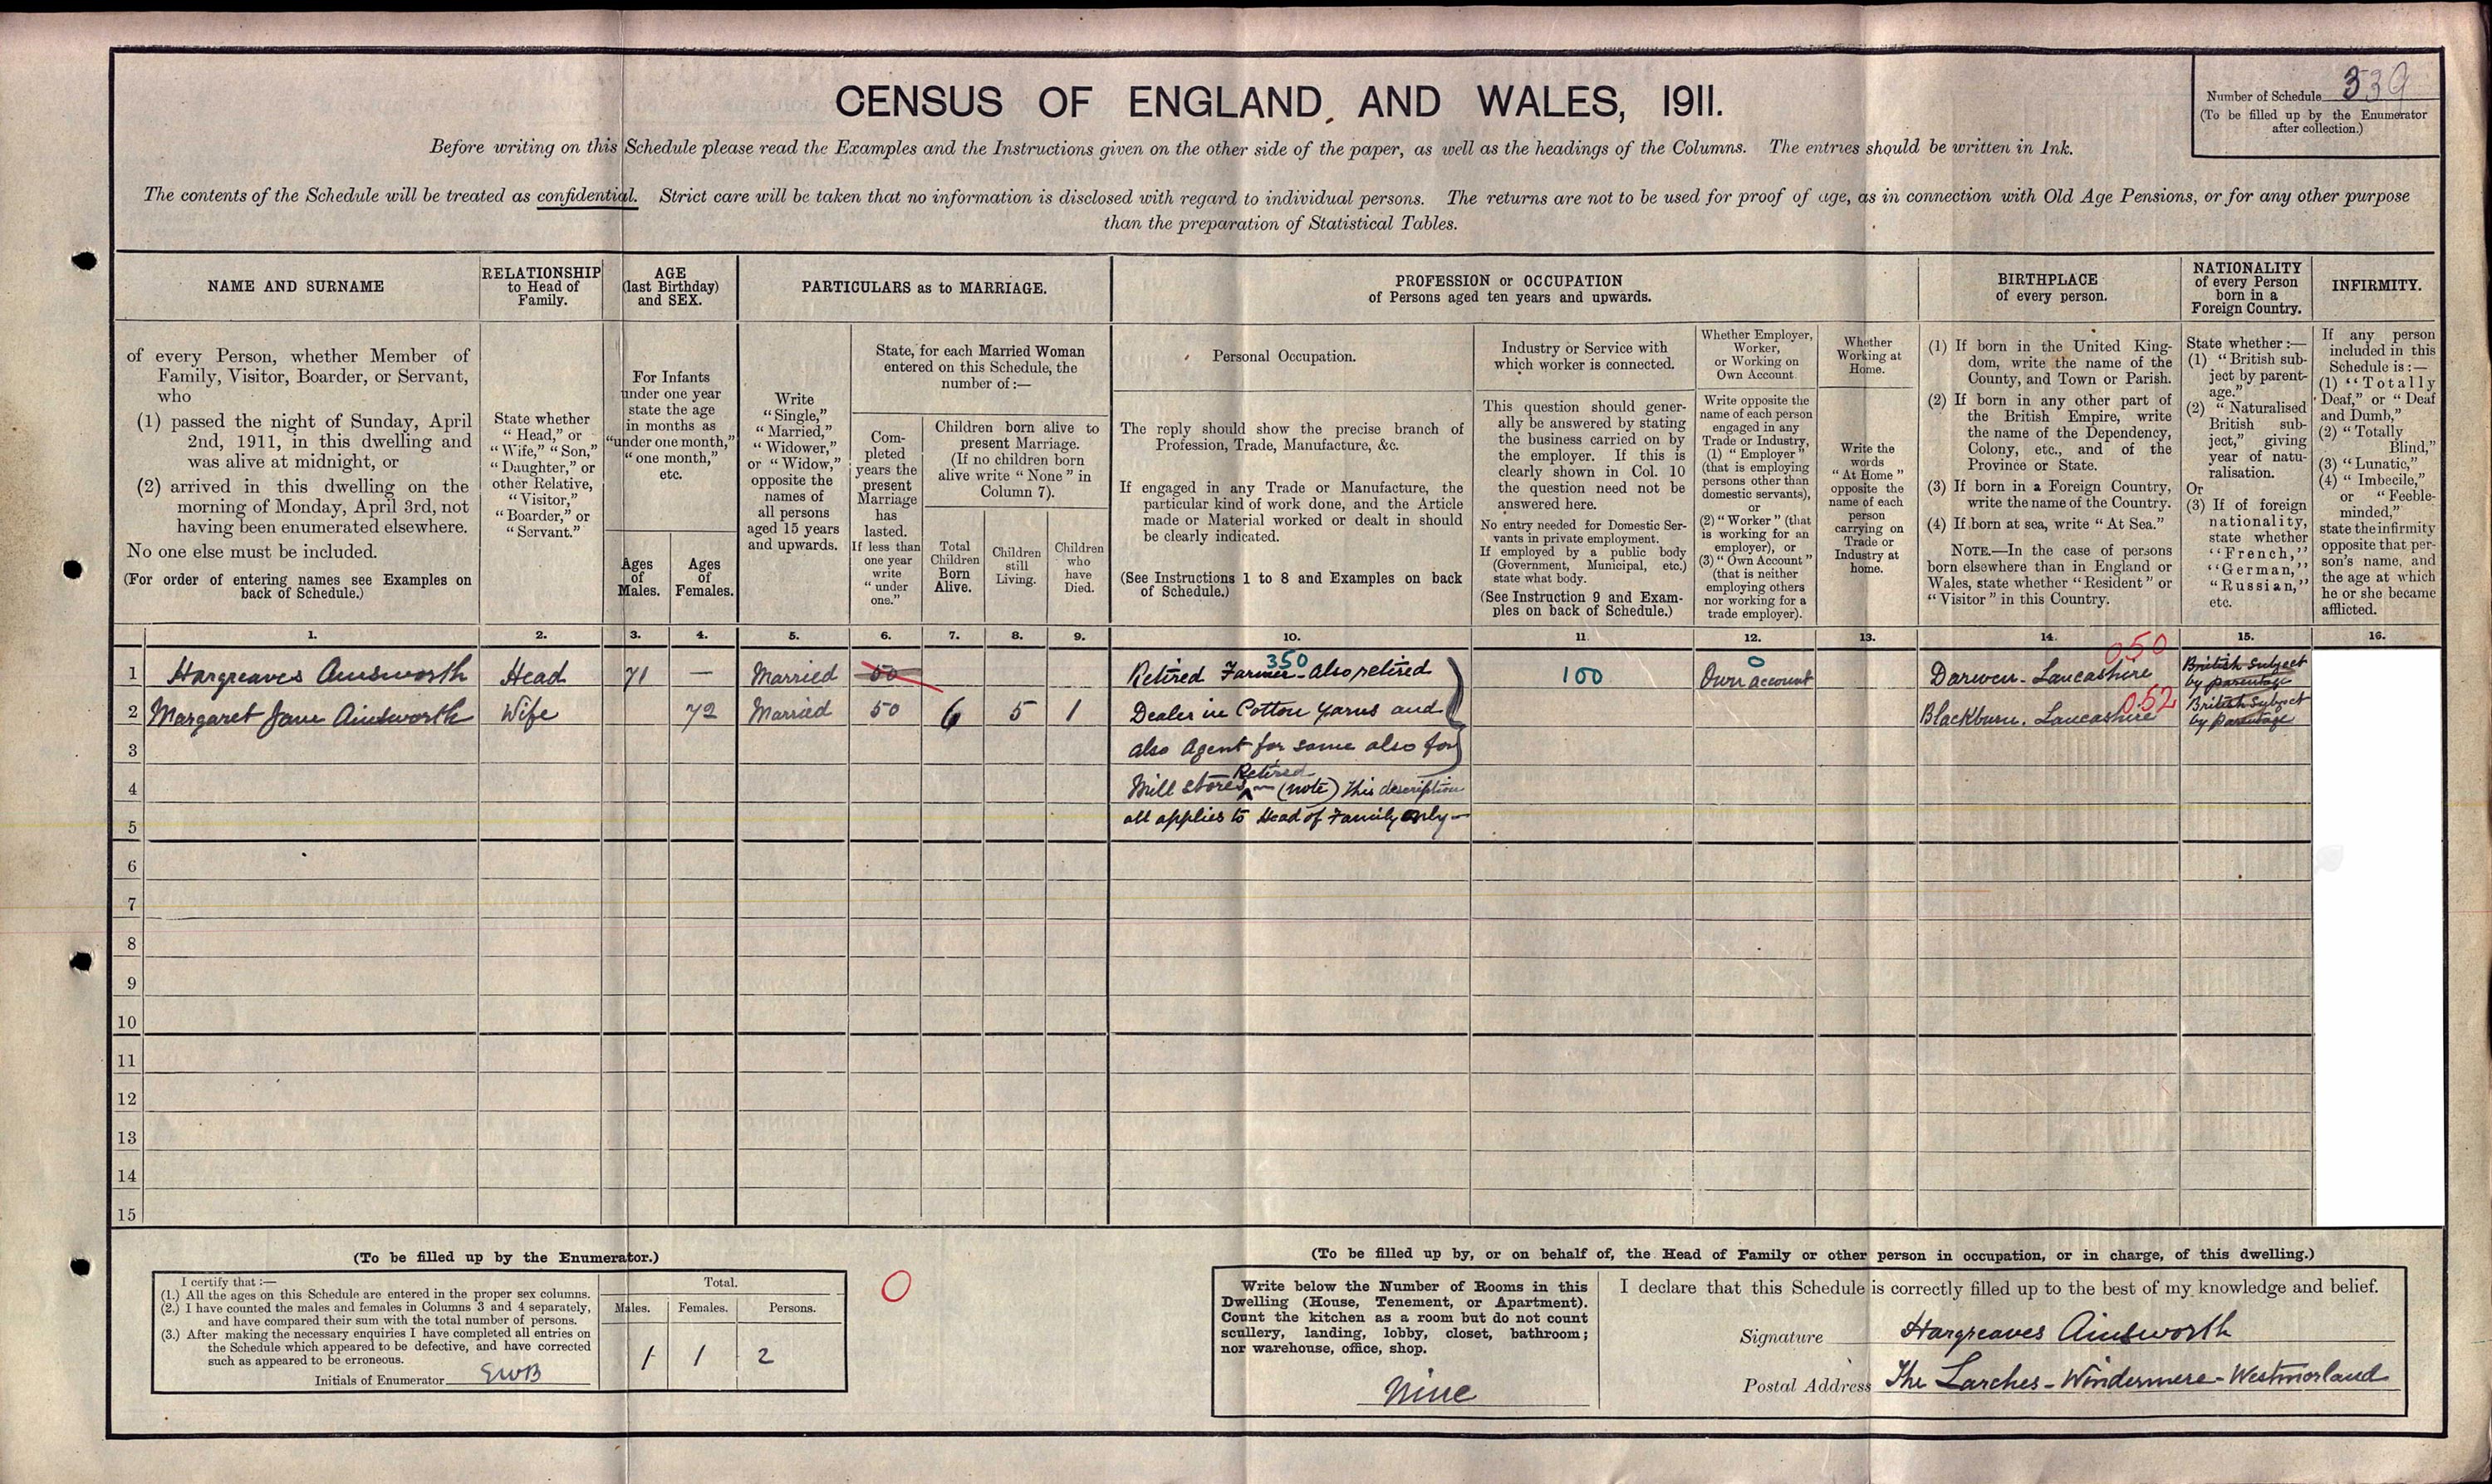 CENSUS OF ENGLAND AND WALES, 1911.
Number of Schedule 339
(To be filled up by the Enumerator
after collection.)
Before writing on this Schedule please read the Examples and the Instructions given on the other side of the paper, as well as the headings of the Columns. The entries should be written in Ink.
The contents of the Schedule will be treated as confidential. Strict care will be taken that no information is disclosed with regard to individual persons. The returns are not to be used for proof of age, as in connection with Old Age Pensions, or for any other purpose
than the preparation of Statistical Tables.
NAME AND SURNAME
of every Person, whether Member of
Family, Visitor, Boarder, or Servant,
who
(1) passed the night of Sunday, April
2nd, 1911, in this dwelling and
was alive at midnight, or
(2) arrived in this dwelling on the
morning of Monday, April 3rd, not
having been enumerated elsewhere.
No one else must be included.
(For order of entering names see Examples on
back of Schedule.)
RELATIONSHIP
to Head of
Family.
State whether
"Head," or
"Wife," "Son,"
"Daughter," or
other Relative,
"Visitor,"
"Boarder," or
"Servant."
AGE
(last Birthday)
and SEX.
For Infants
under one year
state the age
in months as
"under one month,"
"one month,"
etc.
Ages
of
Males.
Ages
of
Females.
PARTICULARS as to MARRIAGE.
Write
"Single,"
"Married,"
"Widower,"
or "Widow,"
opposite the
names of
all persons
aged 15 years
and upwards.
State, for each Married Woman
entered on this Schedule, the
number of:—
Com-
pleted
years the
present
Marriage
has
lasted.
If less than
one year
write
"under
one."
Children born alive to
present Marriage.
(If no children born
alive write "None" in
Column 7).
Total
Children
Born
Alive.
Children
still
Living.
Children
who
have
Died.
PROFESSION or OCCUPATION
of Persons aged ten years and upwards.
Personal Occupation.
The reply should show the precise branch of
Profession, Trade, Manufacture, &c.
If engaged in any Trade or Manufacture, the
particular kind of work done, and the Article
made or Material worked or dealt in should
be clearly indicated.
(See Instructions 1 to 8 and Examples on back
of Schedule.)
Industry or Service with
which worker is connected.
This question should gener-
ally be answered by stating
the business carried on by
the employer. If this is
clearly shown in Col. 10
the question need not be
answered here.
No entry needed for Domestic Ser-
vants in private employment.
If employed by a public body
(Government, Municipal, etc.)
state what body.
(See Instruction 9 and Exam-
ples on back of Schedule.)
Whether Employer,
Worker,
or Working on
Own Account.
Write opposite the
name of each person
engaged in any
Trade or Industry,
(1) "Employer"
(that is employing
persons other than
domestic servants),
or
(2) "Worker" (that
is working for an
employer), or
(3) "Own Account"
(that is neither
employing others
nor working for a
trade employer).
Whether
Working at
Home.
Write the
words
"At Home"
opposite the
name of each
person
carrying on
Trade or
Industry at
home.
BIRTHPLACE
of every person.
(1) If born in the United King-
dom, write the name of the
County, and Town or Parish.
(2) If born in any other part of
the British Empire, write
the name of the Dependency,
Colony, etc., and of the
Province or State.
(3) If born in a Foreign Country,
write the name of the Country.
(4) If born at sea, write "At Sea."
NOTE.—In the case of persons
born elsewhere than in England or
Wales, state whether "Resident" or
"Visitor" in this Country.
NATIONALITY
of every Person
born in a
Foreign Country.
State whether:—
(1) "British sub-
ject by parent-
age."
(2) "Naturalised
British sub-
ject," giving
year of natu-
ralisation.
Or
(3) If of foreign
nationality,
state whether
"French,"
"German,"
"Russian,"
etc.
INFIRMITY.
If any person
included in this
Schedule is:—
(1) "Totally
Deaf," or "Deaf
and Dumb,"
(2) "Totally
Blind,"
(3) "Lunatic,"
(4) "Imbecile,"
or "Feeble-
minded,"
state the infirmity
opposite that per-
son's name, and
the age at which
he or she became
afflicted.
1. 2. 3. 4. 5. 6. 7. 8. 9. 10. 11. 12. 13. 14. 15. 16.
350 0 050
1 Hargreaves Ainsworth Head 71 — Married 50 Retired Farmer - Also retired 100 Own account Darwen - Lancashire British Subject
by parentage
052
2 Margaret Jane Ainsworth Wife 72 Married 50 6 5 1 Dealer in Cotton Yarns and Blackburn. Lancashire British Subject
by parentage
3 also Agent for same also for
Retired
4 Mill Stores — (note) This description
5 all applies to Head of Family only —
6
7
8
9
10
11
12
13
14
15
(To be filled up by the Enumerator.)
I certify that:—
(1.) All the ages on this Schedule are entered in the proper sex columns.
(2.) I have counted the males and females in Columns 3 and 4 separately,
and have compared their sum with the total number of persons.
(3.) After making the necessary enquiries I have completed all entries on
the Schedule which appeared to be defective, and have corrected
such as appeared to be erroneous.
Initials of Enumerator EWB
Total.
Males. Females. Persons.
1 1 2
0
(To be filled up by, or on behalf of, the Head of Family or other person in occupation, or in charge, of this dwelling.)
Write below the Number of Rooms in this
Dwelling (House, Tenement, or Apartment).
Count the kitchen as a room but do not count
scullery, landing, lobby, closet, bathroom;
nor warehouse, office, shop.
Nine
I declare that this Schedule is correctly filled up to the best of my knowledge and belief.
Signature Hargreaves Ainsworth
Postal Address The Larches - Windermere - Westmorland